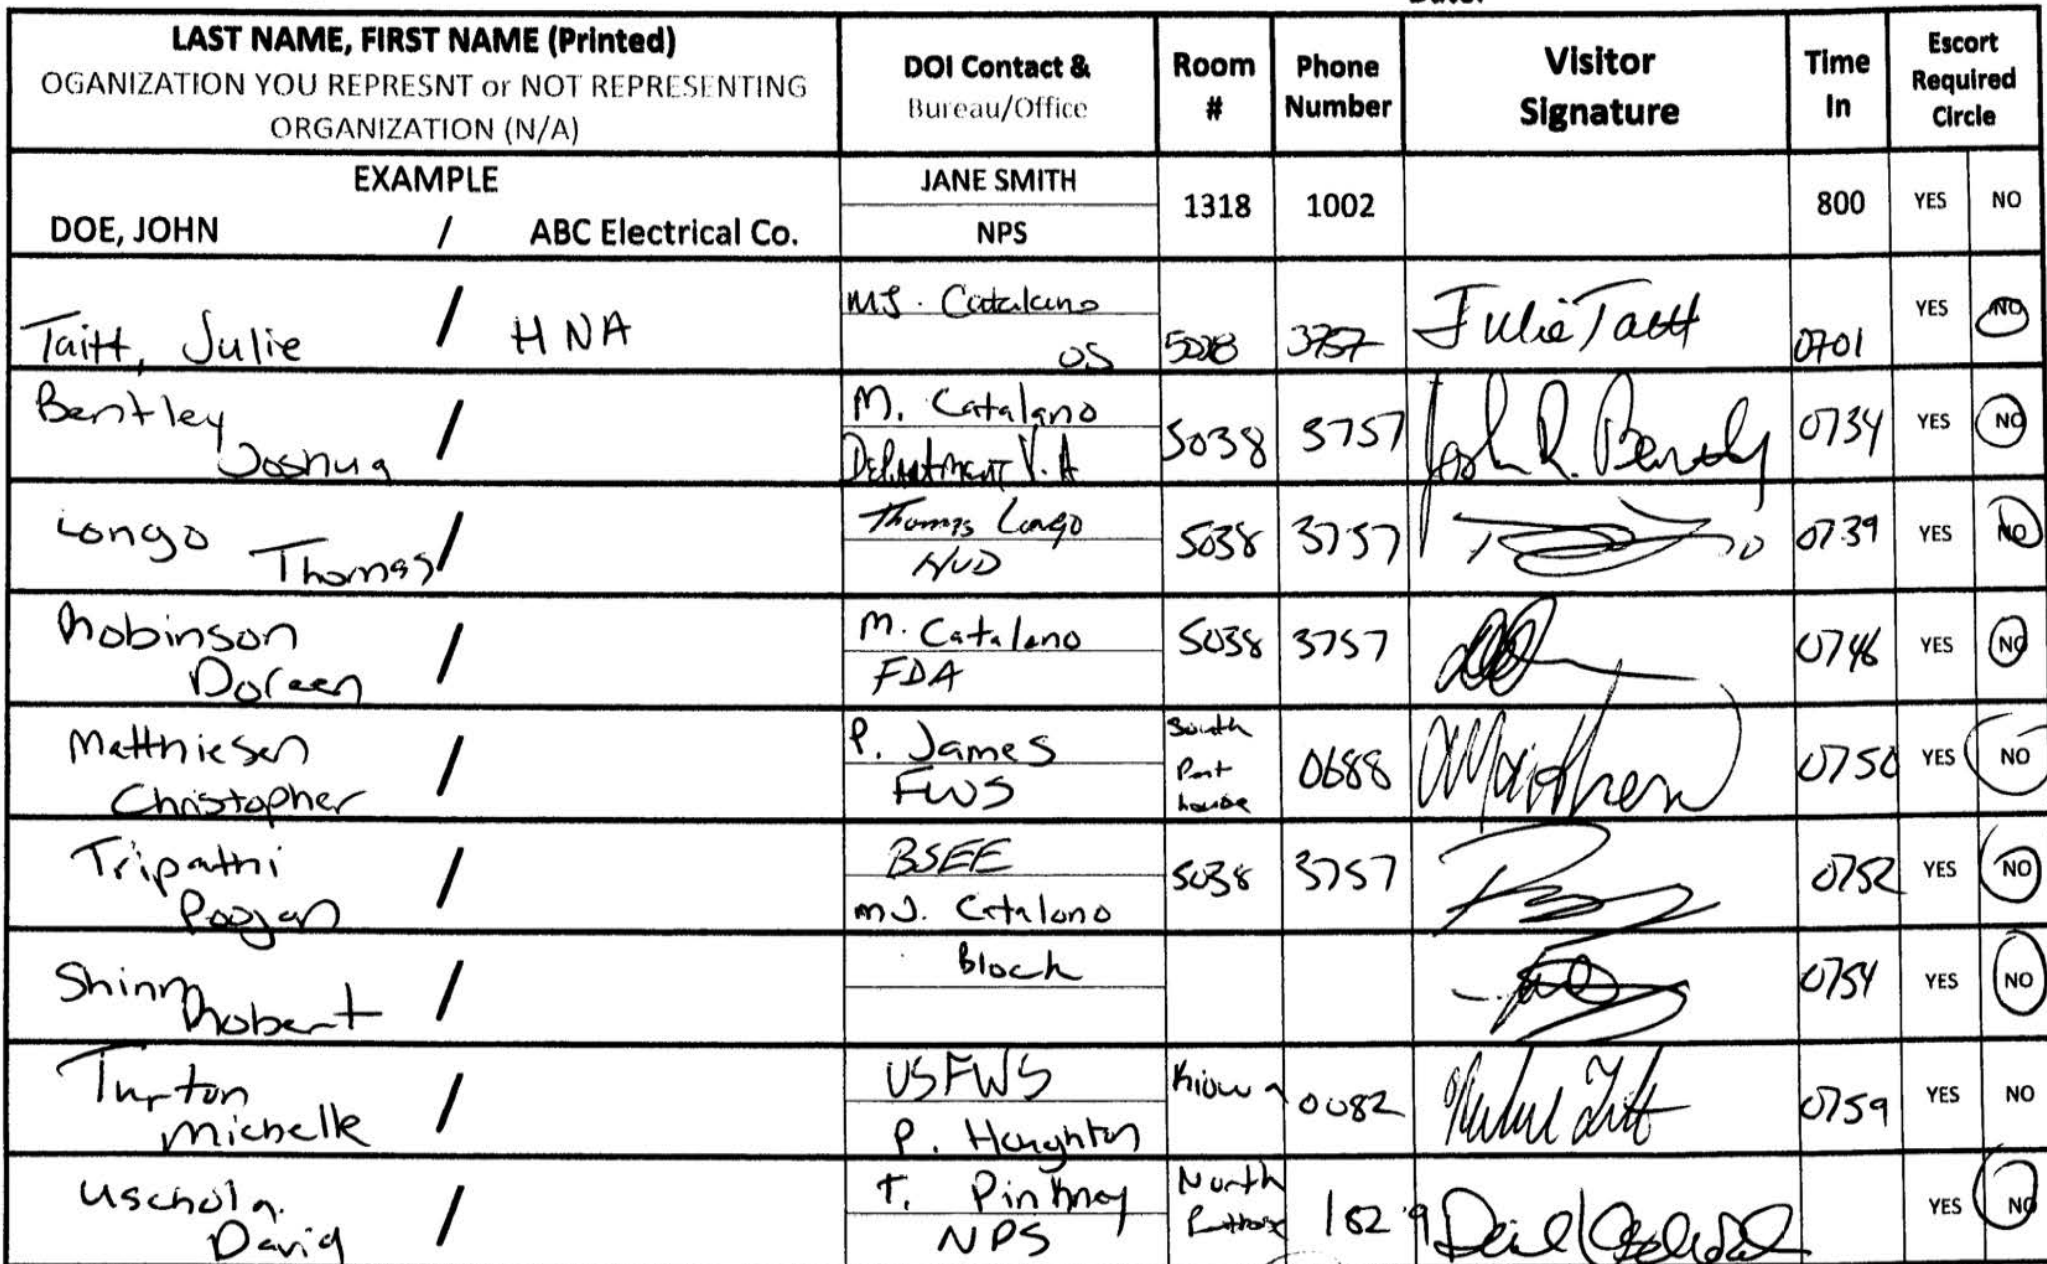 LAST NAME, FIRST NAME (Printed)
OGANIZATION YOU REPRESNT or NOT REPRESENTING
ORGANIZATION (N/A)
DOI Contact &
Bureau/Office
Room
#
Phone
Number
Visitor
Signature
Time
In
Escort
Required
Circle
EXAMPLE
DOE, JOHN / ABC Electrical Co.
JANE SMITH
NPS
1318 1002 800 YES NO
Taitt, Julie / HNA
MJ. Catalano
OS
3757 Julie Taitt 0701 YES NO
Bentley
Joshua /
M. Catalano
Department V.A
5038 3757 0734 YES NO
Longo
Thomas /
Thomas Longo
HUD
5038 3757 0739 YES NO
Robinson
Doreen /
M. Catalano
FDA
5038 3757 0746 YES NO
Matthiesen
Christopher /
P. James
FWS
South
Pent
house
0688 0750 YES NO
Tripathi
Poojan /
BSEE
MJ. Catalano
5038 3757 0752 YES NO
Shinn
Robert /
Block
0754 YES NO
Turton
Michelle /
USFWS
P. Houghton
Kiowa 0082 0759 YES NO
David /
T. Pinkney
NPS
North
YES NO